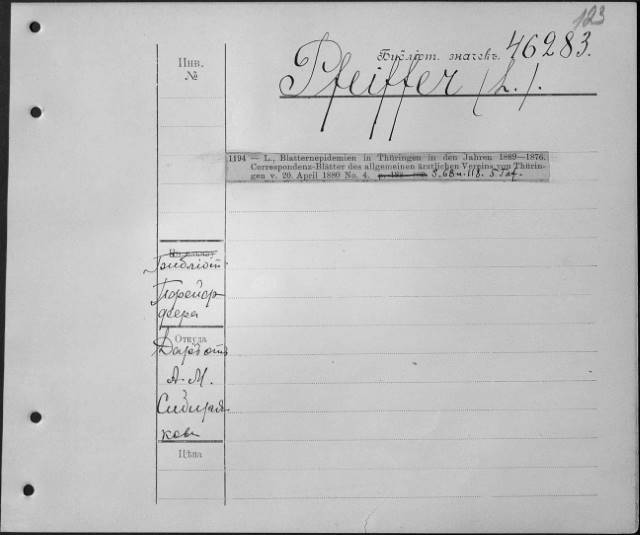 123
Инв.
№
Библіот. значекъ. 46283.
Pfeiffer (L.).
1194 — L., Blatternepidemien in Thüringen in den Jahren 1889—1876.
Correspondenz-Blätter des allgemeinen ärztlichen Vereins von Thürin-
gen v. 20. April 1880 No. 4. S. 68 u. 118. 5 Taf.
Библіот.
Порейор
фера
Откуда
Даръ отъ
А. М.
Сибиря
кова
Цѣна